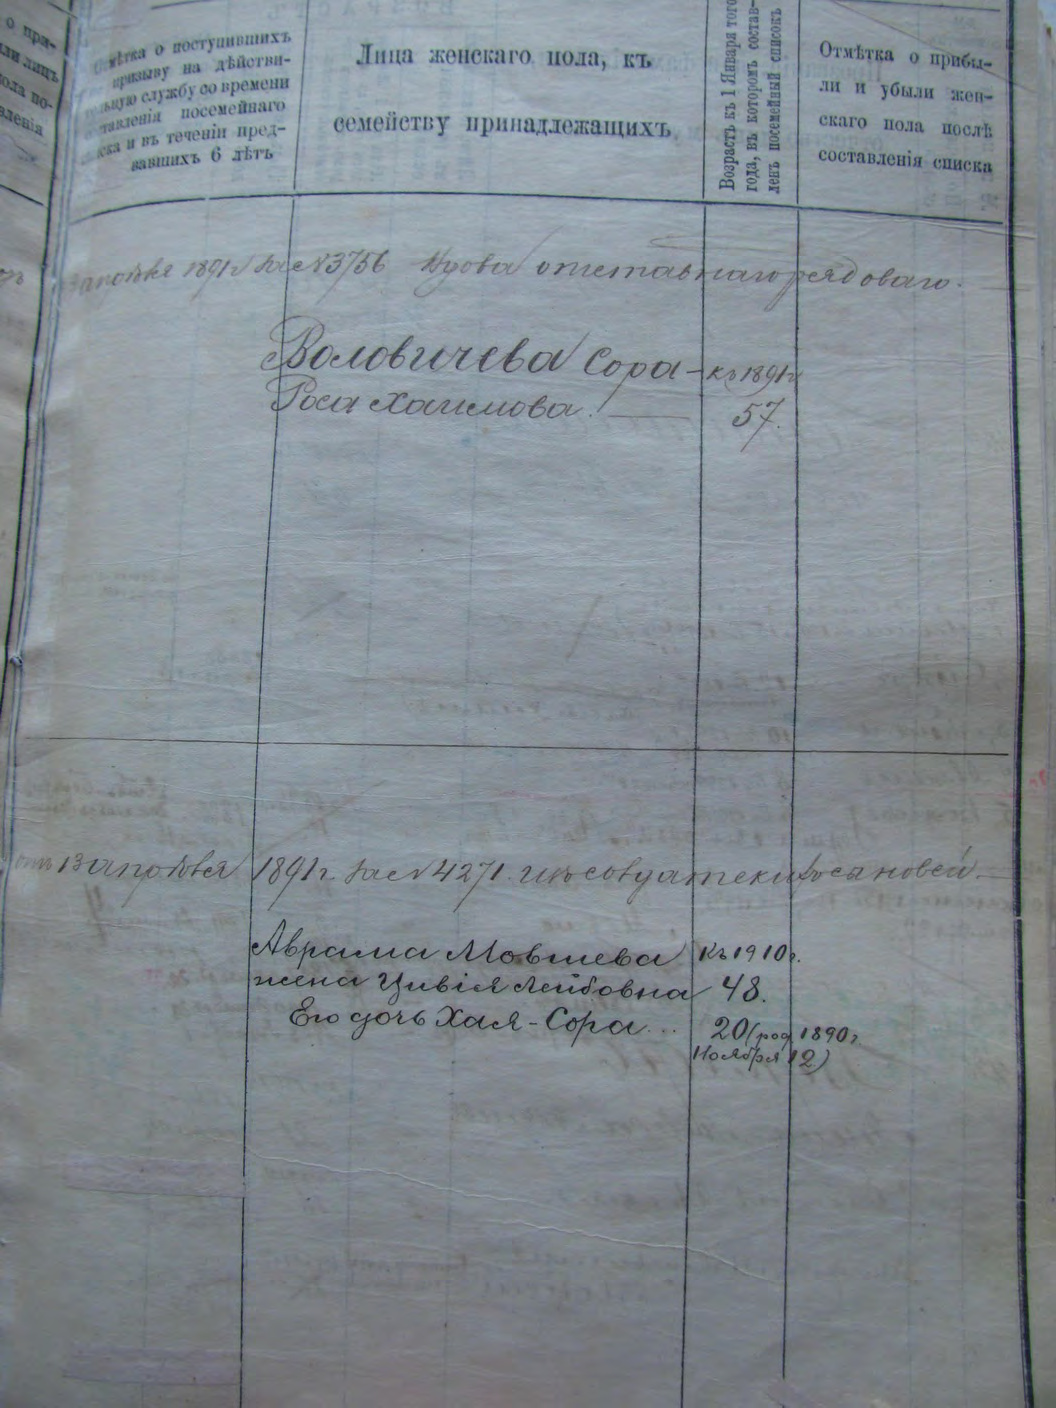 о при-
ли лицъ
пола по-
вленія
Отмѣтка о поступившихъ
призыву на дѣйстви-
тельную службу со времени
составленія посемейнаго
списка и въ теченіи пред-
вавшихъ 6 лѣтъ
Лица женскаго пола, къ
семейству принадлежащихъ
Возрастъ къ 1 Января того
года, въ которомъ состав-
ленъ посемейный списокъ
Отмѣтка о прибы-
ли и убыли жен-
скаго пола послѣ
составленія списка
апрѣля 1891 г за № 3756 Вдова отставнаго рядоваго.
Воловичева Сора- къ 1891 г
Роса Хаимова. 57.
отъ 13 апрѣля 1891 г. за № 4271.
Аврама Мовшева къ 1910 г.
жена Цивія Лейбовна 48.
Его дочь Хая-Сора... 20 (род 1890 г
Ноября 12)